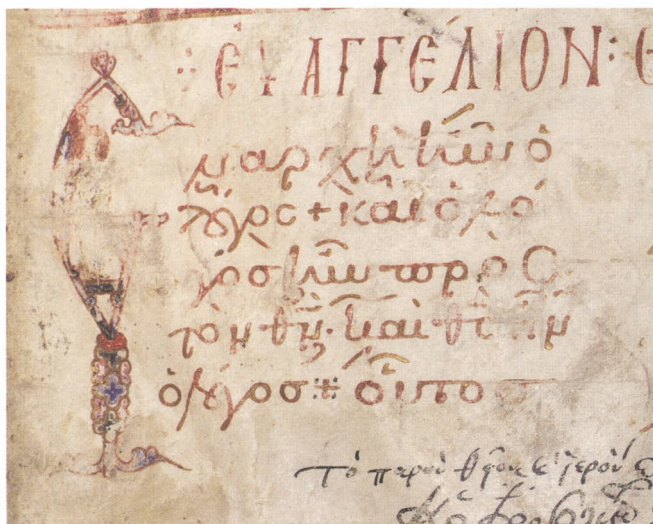 ΕΥΑΓΓΕΛΙΟΝ:
Ἐν ἀρχῆ ἦν ὁ
λόγος + καὶ ὁ λό
γος ἦν πρὸς
τὸν θν· καὶ θς ἦν
ὁ λόγος ⁘ οὗτο
Τὸ παρὸν θεῖον ἱερὸν